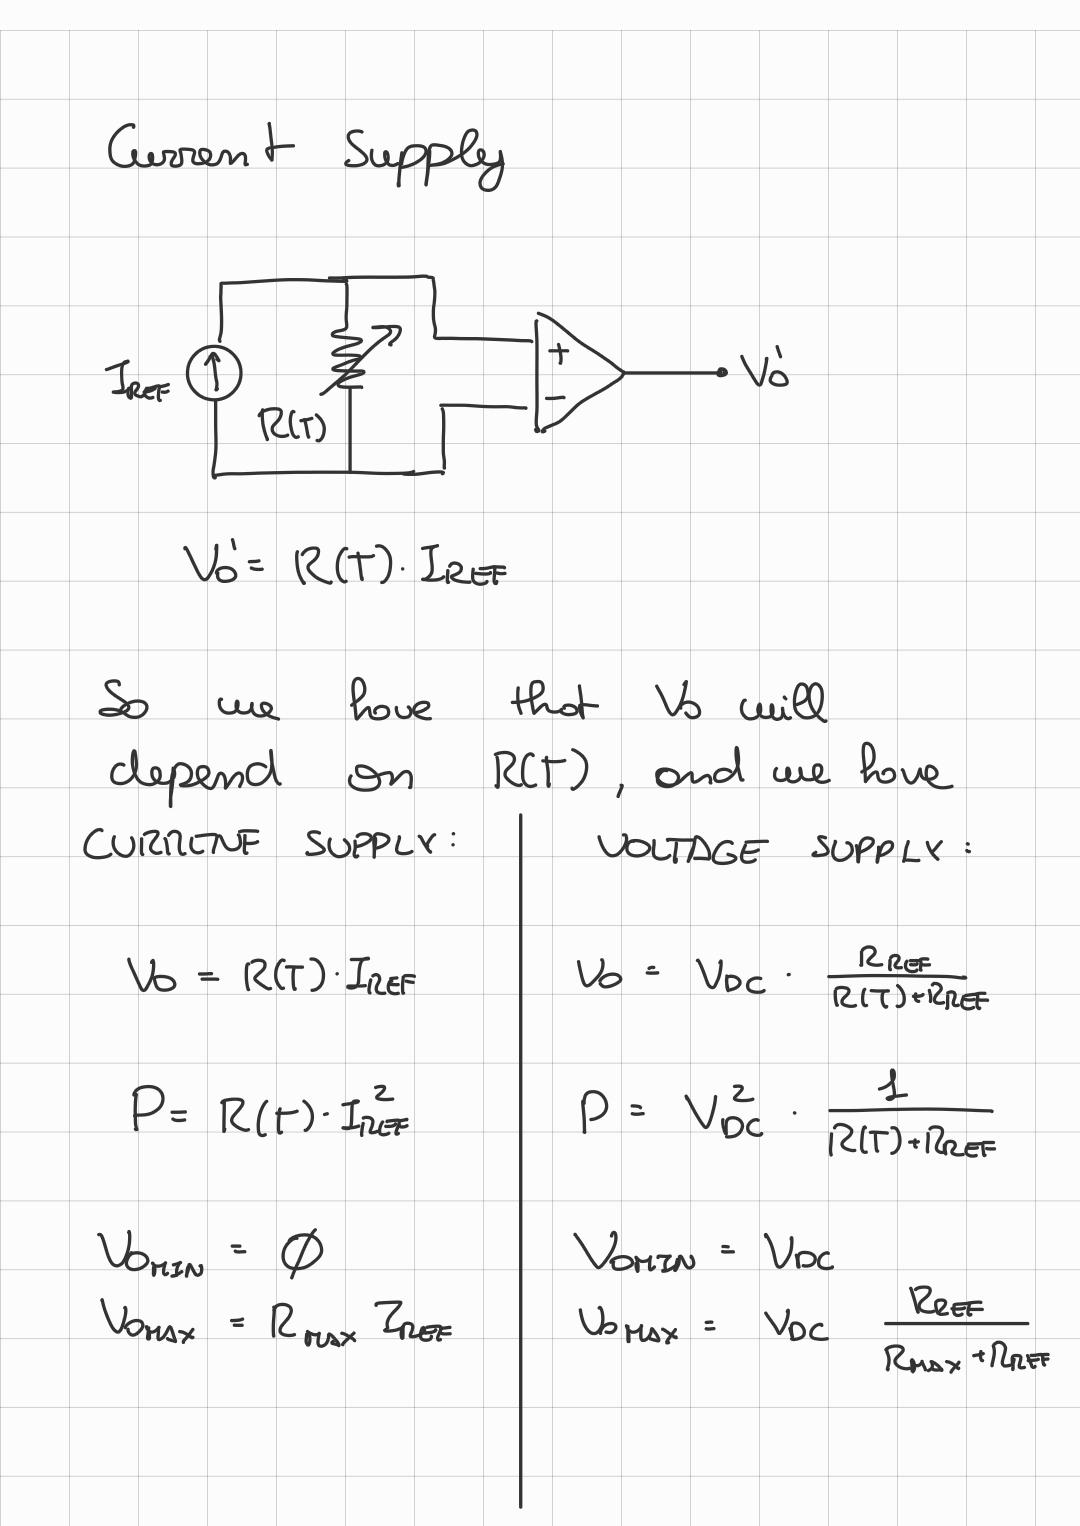 Current Supply
I_REF
R(T)
+
-
Vo'
Vo' = R(T) · I_REF
So we have that Vo will
depend on R(T), and we have
CURRENT SUPPLY:
Vo = R(T) · I_REF
P = R(t) · I_REF^2
Vo_MIN = Ø
Vo_MAX = R_MAX I_REF
VOLTAGE SUPPLY:
Vo = V_DC · R_REF / (R(T) + R_REF)
P = V_DC^2 · 1 / (R(T) + R_REF)
Vo_MIN = V_DC
Vo_MAX = V_DC R_REF / (R_MAX + R_REF)